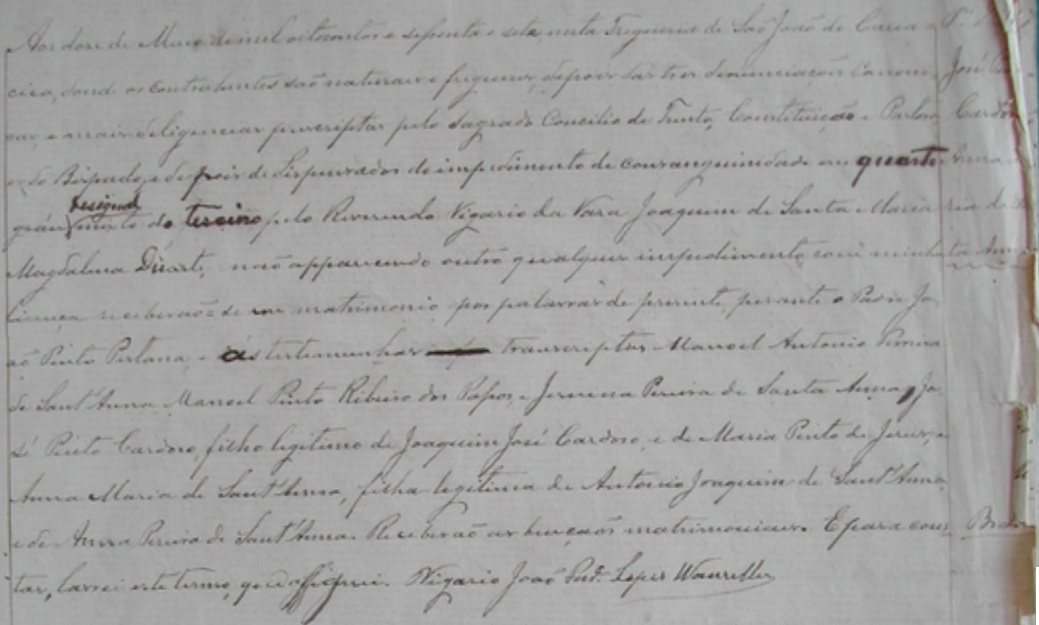 Aos doze de Maio de mil oitocentos e sepenta e sete, nesta Freguezia de São João de Caria-
cica, donde os contrahentes são naturaes e freguezes, depois das tres denunciações canoni- José
cas, e mais deligencias prescriptas pelo Sagrado Concilio de Trento, Constituição e Pastora Cardoso
es do Bispado, e depois de dispensados do impedimento de consanguinidade em quarto Anna
gráu desigual mixto do terceiro pelo Reverendo Vigario da Vara Joaquim de Santa Maria ria de
Magdalena Duarte, não apparecendo outro qualquer impedimento, com minha ta Anna
licença receberão-se em matrimonio por palavras de presente, perante o Padre Jo-
ão Pinto Pestana, e ás testemunhas transcriptas Manoel Antonio Pereira
de Sant'Anna Manoel Pinto Ribeiro dos Passos, e Jervina Pereira de Santa Anna, Jo-
sé Pinto Cardoso, filho legitimo de Joaquim José Cardoso, e de Maria Pinto de Jesus, e
Anna Maria de Sant'Anna, filha legitima de Antonio Joaquim de Sant'Anna,
e de Anna Pereira de Sant'Anna. Receberão as bençaõs matrimoniaes. E para cons-
tar, lavrei este termo, que assignei. Vigario João Lopes